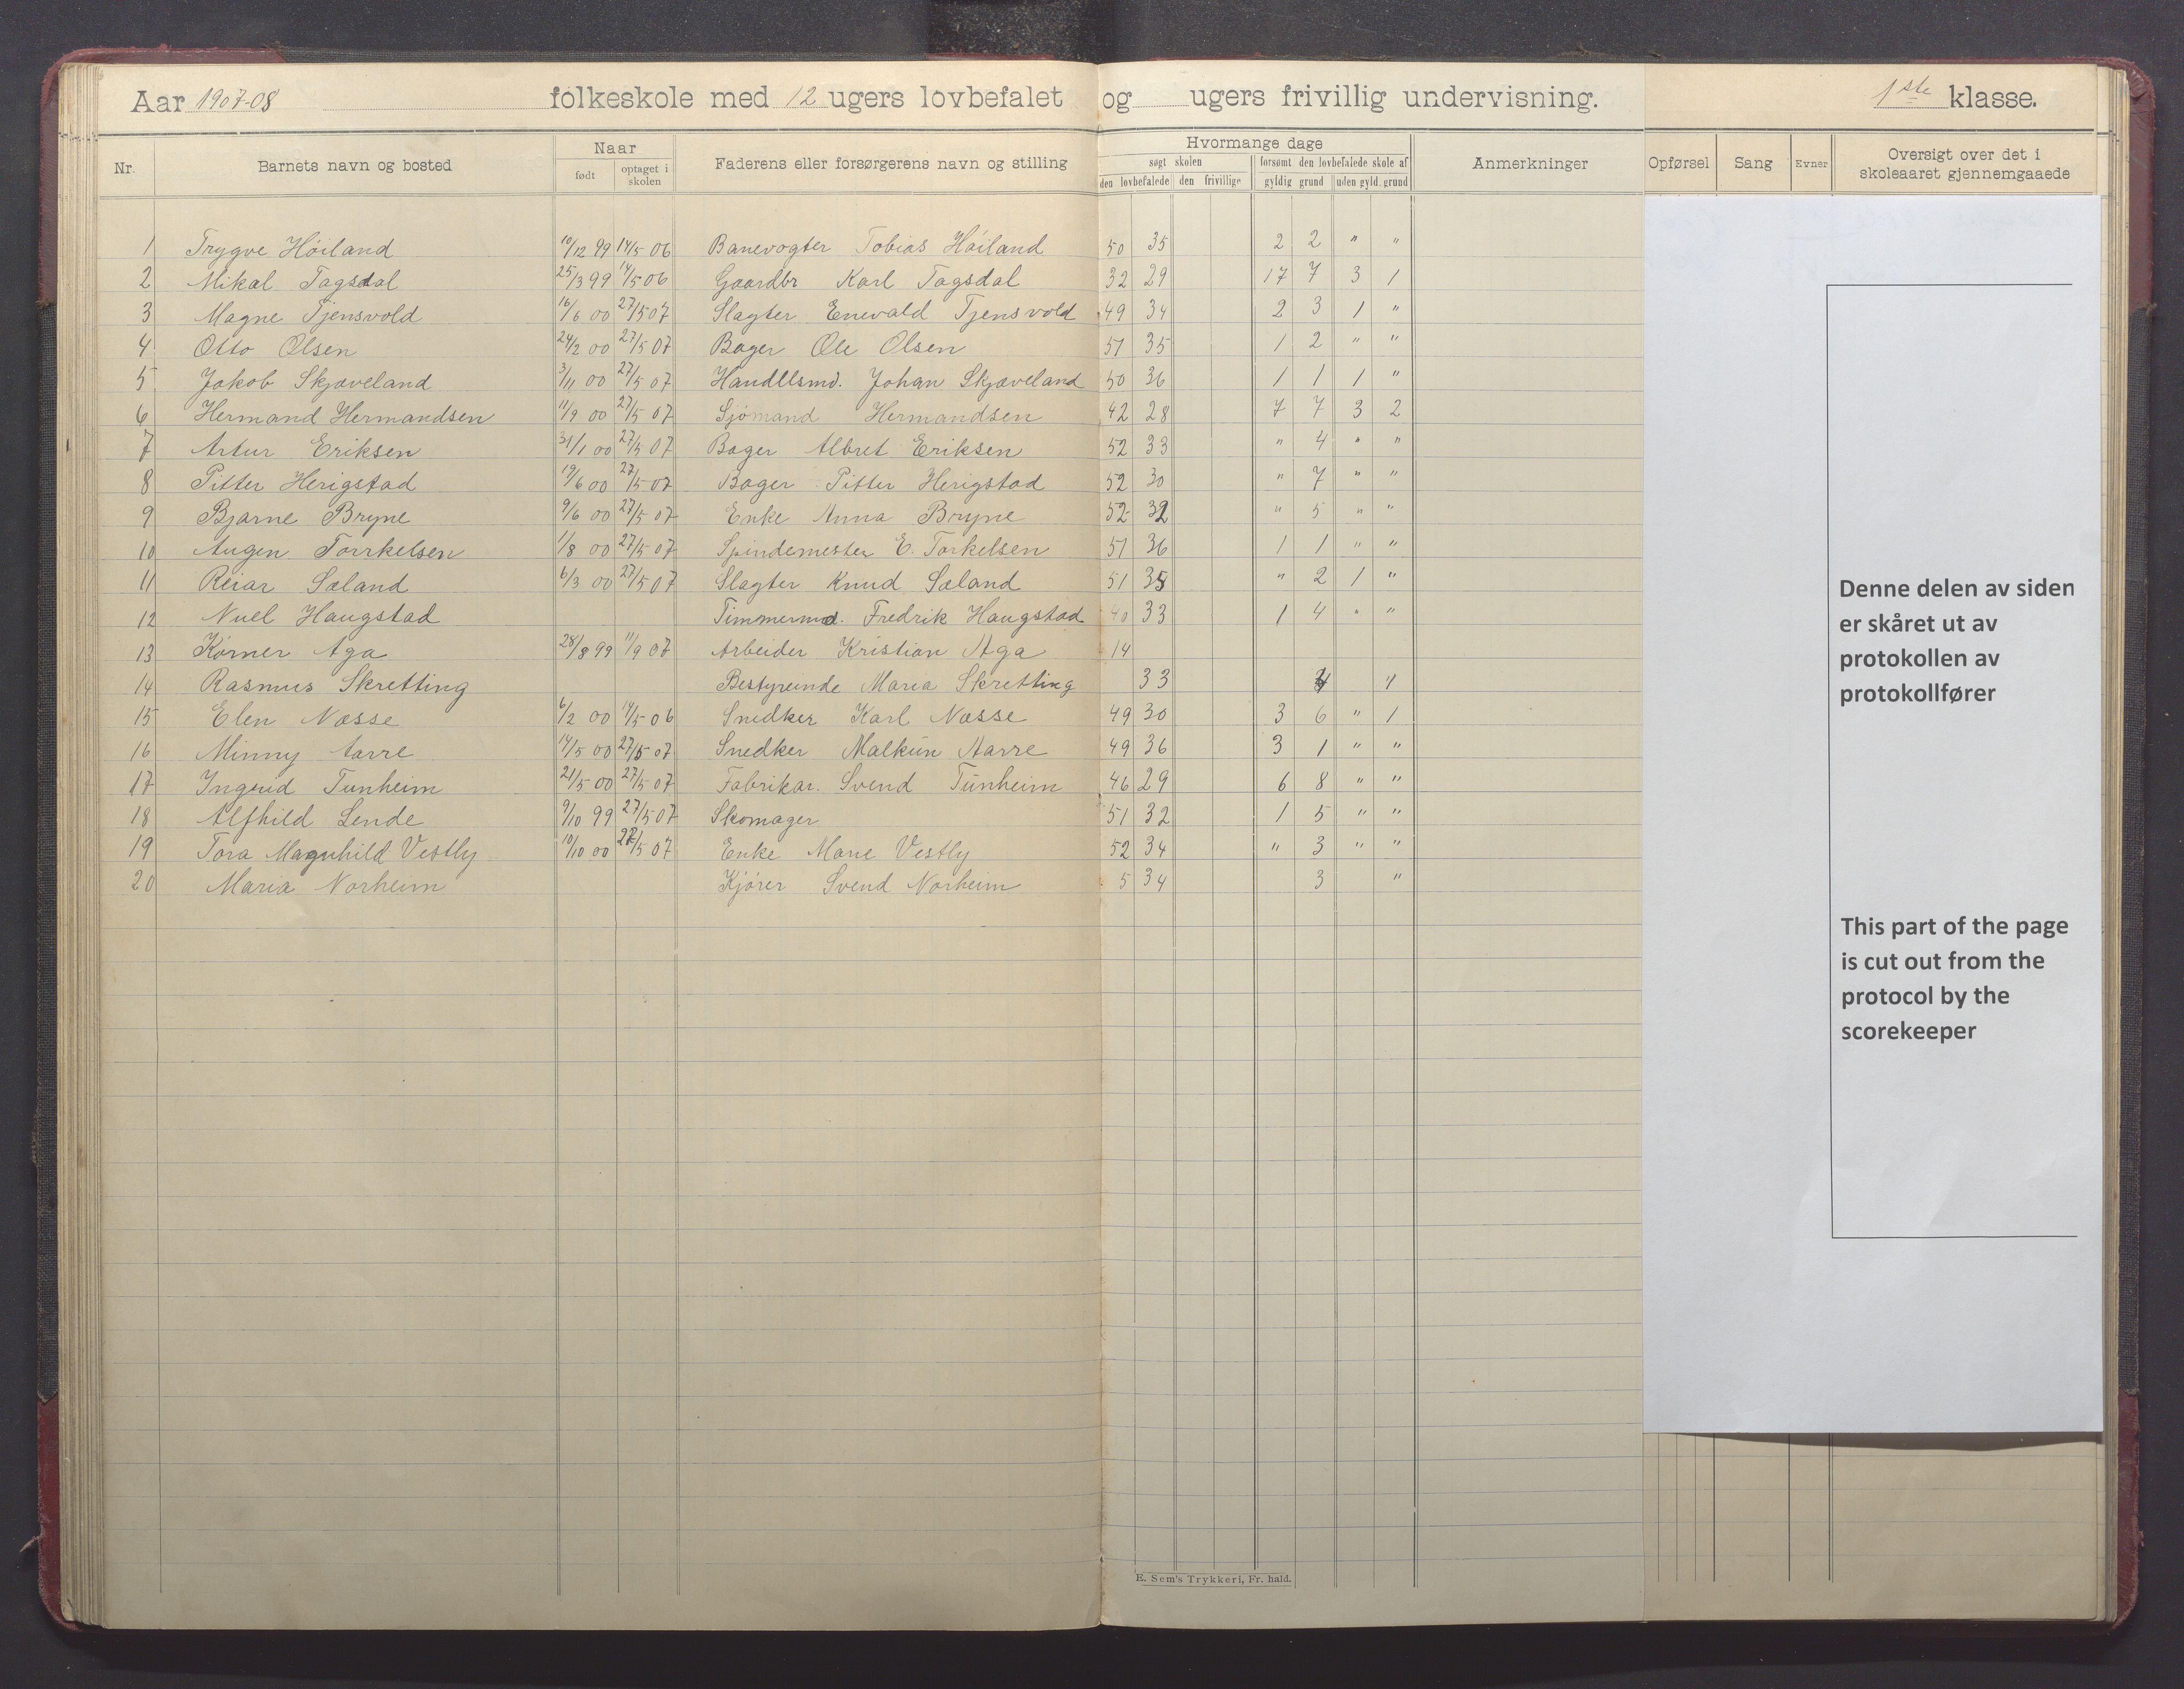 Aar 1907-08 folkeskole med 12 ugers lovbefalet og ugers frivillig undervisning. 1ste klasse.
Nr. Barnets navn og bosted Naar født optaget i skolen Faderens eller forsørgerens navn og stilling Hvormange dage søgt skolen den lovbefalede den frivillige forsømt den lovbefalede skole af gyldig grund uden gyld. grund Anmerkninger Opførsel Sang Evner Oversigt over det i skoleaaret gjennemgaaede
1 Trygve Höiland 10/12 99 14/5 06 Banevogter Tobias Höiland 50 35 2 2 " "
2 Mikal Tagsdal 25/3 99 14/5 06 Gaardbr Karl Tagsdal 32 29 17 7 3 1
3 Magne Tjensvold 16/6 00 27/5 07 Slagter Enevald Tjensvold 49 34 2 3 1 "
4 Otto Olsen 24/2 00 27/5 07 Bager Ole Olsen 51 35 1 2 " "
5 Jakob Skjæveland 3/11 00 27/5 07 Handelsmd. Johan Skjæveland 50 36 1 1 1 "
6 Hermand Hermandsen 11/9 00 27/5 07 Sjömand Hermandsen 42 28 7 7 3 2
7 Artur Eriksen 31/1 00 27/5 07 Bager Albret Eriksen 52 33 " 4 " "
8 Pitter Herigstad 19/6 00 27/5 07 Bager Pitter Herigstad 52 30 " 7 " "
9 Bjarne Bryne 9/6 00 27/5 07 Enke Anna Bryne 52 32 " 5 " "
10 Augen Torrkelsen 1/8 00 27/5 07 Spindemester E. Torkelsen 51 36 1 1 " "
11 Reiar Sæland 6/3 00 27/5 07 Slagter Knud Sæland 51 35 " 2 1 "
12 Nuel Haugstad Timmermd. Fredrik Haugstad 40 33 1 4 " "
13 Körner Aga 28/8 99 11/9 07 Arbeider Kristian Aga 14
14 Rasmus Skretting Bestyreinde Maria Skretting 33
15 Elen Næsse 6/2 00 14/5 06 Snedker Karl Næsse 49 30 3 6 " 1
16 Minny Aarre 14/5 00 27/5 07 Snedker Malkün Aarre 49 36 3 1 " "
17 Ingrid Tunheim 21/5 00 27/5 07 Fabrikar. Svend Tünheim 46 29 6 8 " "
18 Alfhild Lende 9/10 99 27/5 07 Skomager 51 32 1 5 " "
19 Tora Magnhild Vestly 10/10 00 27/5 07 Enke Marie Vestly 52 34 " 3 " "
20 Maria Norheim Kjörer Svend Norheim 5 34 3 "
Denne delen av siden
er skåret ut av
protokollen av
protokollfører
This part of the page
is cut out from the
protocol by the
scorekeeper
E. Sem's Trykkeri, Fr. hald.